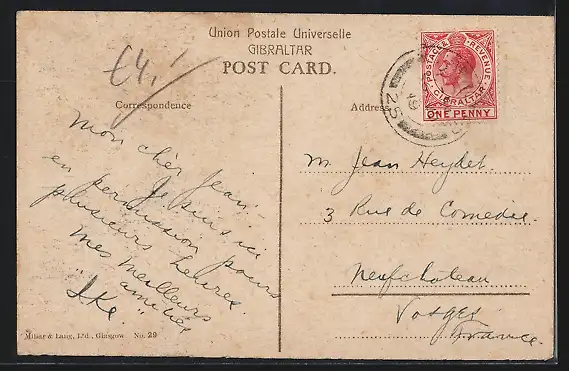 Union Postale Universelle
GIBRALTAR
POST CARD.
£4.
Correspondence
Address
POSTAGE & REVENUE
GIBRALTAR
ONE PENNY
25
Mon cher Jean -
Je suis ici
en permission pour
plusieurs heures.
Mes meilleurs
amitiés
M. Jean Heydet
3 Rue de Comedie.
Neufchateau
Vosges
France.
Millar & Lang, Ltd., Glasgow No. 29